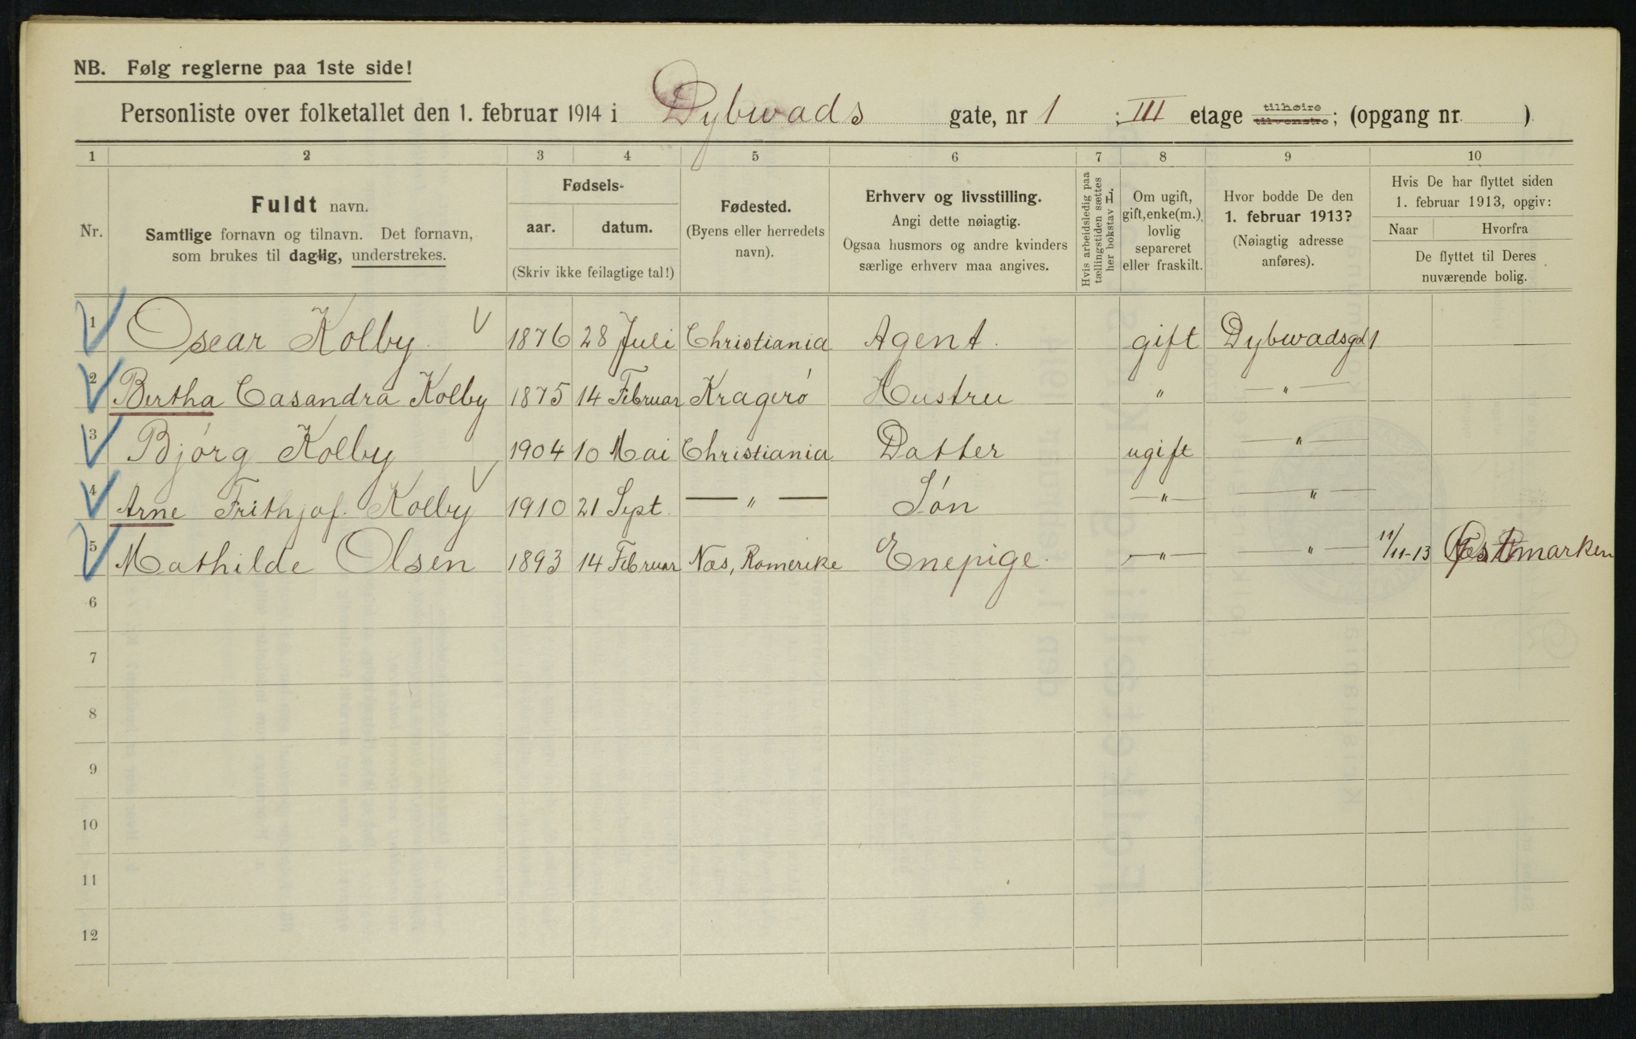 NB. Følg reglerne paa 1ste side!
Personliste over folketallet den 1. februar 1914 i Dybwads gate, nr 1 ; III etage tilhøire tilvenstre; (opgang nr. )
1 2 3 4 5 6 7 8 9 10
Nr.
Fuldt navn.
Samtlige fornavn og tilnavn. Det fornavn,
som brukes til daglig, understrekes.
Fødsels-
aar. datum.
(Skriv ikke feilagtige tal!)
Fødested.
(Byens eller herredets
navn).
Erhverv og livsstilling.
Angi dette nøiagtig.
Ogsaa husmors og andre kvinders
særlige erhverv maa angives.
Hvis arbeidsledig paa
tællingstiden sættes
her bokstav L.
Om ugift,
gift, enke(m.),
lovlig
separeret
eller fraskilt.
Hvor bodde De den
1. februar 1913?
(Nøiagtig adresse
anføres).
Hvis De har flyttet siden
1. februar 1913, opgiv:
Naar Hvorfra
De flyttet til Deres
nuværende bolig.
1 Oscar Kolby 1876 28 Juli Christiania Agent. gift Dybwadsgd 1
2 Bertha Casandra Kolby 1875 14 Februar Kragerø Hustru " — " —
3 Bjørg Kolby 1904 10 Mai Christiania Datter ugift — " —
4 Arne Frithjof Kolby 1910 21 Sept. — " — Søn — " — — " —
5 Mathilde Olsen 1893 14 Februar Næs, Romerike Enepige. — " — — " — 11/11-13
6
7
8
9
10
11
12